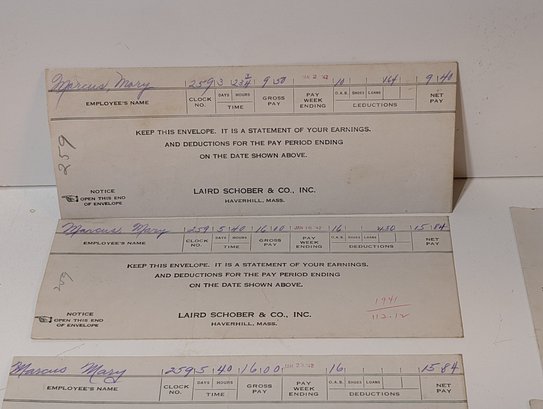 Marcus, Mary 259 3 23 3/4 9 50 JAN 2 '42 10 164 9 40
EMPLOYEE'S NAME CLOCK NO. DAYS HOURS TIME GROSS PAY PAY WEEK ENDING O.A.B. SHOES LOANS DEDUCTIONS NET PAY
KEEP THIS ENVELOPE. IT IS A STATEMENT OF YOUR EARNINGS,
AND DEDUCTIONS FOR THE PAY PERIOD ENDING
ON THE DATE SHOWN ABOVE.
259
NOTICE
OPEN THIS END
OF ENVELOPE
LAIRD SCHOBER & CO., INC.
HAVERHILL, MASS.
Marcus, Mary 259 5 40 16 00 '42 16 430 15 84
EMPLOYEE'S NAME CLOCK NO. DAYS HOURS TIME GROSS PAY PAY WEEK ENDING O.A.B. SHOES LOANS DEDUCTIONS NET PAY
KEEP THIS ENVELOPE. IT IS A STATEMENT OF YOUR EARNINGS,
AND DEDUCTIONS FOR THE PAY PERIOD ENDING
ON THE DATE SHOWN ABOVE.
259
NOTICE
OPEN THIS END
OF ENVELOPE
LAIRD SCHOBER & CO., INC.
HAVERHILL, MASS.
1941
112.12
Marcus Mary 259 5 40 16 00 '42 16 15 84
EMPLOYEE'S NAME CLOCK NO. DAYS HOURS TIME GROSS PAY PAY WEEK ENDING O.A.B. SHOES LOANS DEDUCTIONS NET PAY